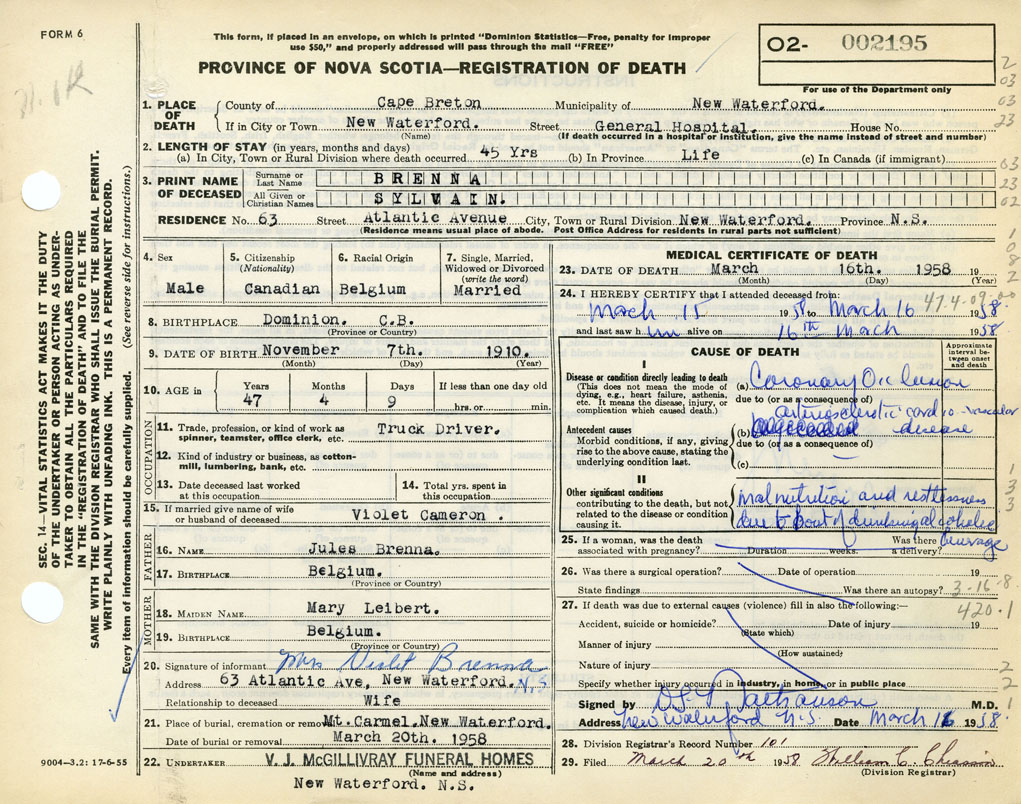 FORM 6
This form, if placed in an envelope, on which is printed "Dominion Statistics—Free, penalty for improper
use $50," and properly addressed will pass through the mail "FREE"
PROVINCE OF NOVA SCOTIA—REGISTRATION OF DEATH
O2- 002195
For use of the Department only
SEC. 14—VITAL STATISTICS ACT MAKES IT THE DUTY
OF THE UNDERTAKER OR PERSON ACTING AS UNDER-
TAKER TO OBTAIN ALL THE PARTICULARS REQUIRED
IN THE "REGISTRATION OF DEATH" AND TO FILE THE
SAME WITH THE DIVISION REGISTRAR WHO SHALL ISSUE THE BURIAL PERMIT.
WRITE PLAINLY WITH UNFADING INK. THIS IS A PERMANENT RECORD.
Every item of information should be carefully supplied. (See reverse side for instructions.)
1. PLACE OF DEATH
County of Cape Breton Municipality of New Waterford.
If in City or Town New Waterford. Street General Hospital. House No.
(Name) (If death occurred in a hospital or institution, give the name instead of street and number)
2. LENGTH OF STAY (in years, months and days)
(a) In City, Town or Rural Division where death occurred 45 Yrs (b) In Province Life (c) In Canada (if immigrant)
3. PRINT NAME OF DECEASED
Surname or Last Name BRENNA
All Given or Christian Names SYLVAIN.
RESIDENCE No. 63 Street Atlantic Avenue City, Town or Rural Division New Waterford. Province N.S.
(Residence means usual place of abode. Post Office Address for residents in rural parts not sufficient)
4. Sex
Male
5. Citizenship (Nationality)
Canadian
6. Racial Origin
Belgium
7. Single, Married, Widowed or Divorced (write the word)
Married
8. BIRTHPLACE Dominion. C.B.
(Province or Country)
9. DATE OF BIRTH November 7th. 1910.
(Month) (Day) (Year)
10. AGE in Years Months Days If less than one day old
47 4 9 hrs. or min.
OCCUPATION
11. Trade, profession, or kind of work as spinner, teamster, office clerk, etc. Truck Driver.
12. Kind of industry or business, as cotton-mill, lumbering, bank, etc.
13. Date deceased last worked at this occupation
14. Total yrs. spent in this occupation
15. If married give name of wife or husband of deceased Violet Cameron .
FATHER
16. NAME Jules Brenna.
17. BIRTHPLACE Belgium.
(Province or Country)
MOTHER
18. MAIDEN NAME Mary Leibert.
19. BIRTHPLACE Belgium.
(Province or Country)
20. Signature of informant Mrs Violet Brenna
Address 63 Atlantic Ave, New Waterford. N.S
Relationship to deceased Wife
21. Place of burial, cremation or removal Mt. Carmel. New Waterford.
Date of burial or removal March 20th. 1958
22. UNDERTAKER V. J. McGILLIVRAY FUNERAL HOMES
(Name and address)
New Waterford. N.S.
9004—3.2: 17-6-55
MEDICAL CERTIFICATE OF DEATH
23. DATE OF DEATH March 16th. 1958 19
(Month) (Day)
24. I HEREBY CERTIFY that I attended deceased from:
47.4-09-00
March 15 1958 to March 16 1958
and last saw him alive on 16th March 1958
CAUSE OF DEATH
Approximate interval between onset and death
I
Disease or condition directly leading to death
(This does not mean the mode of dying, e.g., heart failure, asthenia, etc. It means the disease, injury, or complication which caused death.)
(a) Coronary Occlusion
due to (or as a consequence of)
arteriosclerotic cardio-vascular
Antecedent causes
Morbid conditions, if any, giving rise to the above cause, stating the underlying condition last.
(b) disease
due to (or as a consequence of)
(c)
II
Other significant conditions contributing to the death, but not related to the disease or condition causing it.
malnutrition and restlessness
due to bout of drinking alcoholic
beverage
25. If a woman, was the death associated with pregnancy? Duration weeks. Was there a delivery?
26. Was there a surgical operation? Date of operation 19
State findings Was there an autopsy? 3-16-8
27. If death was due to external causes (violence) fill in also the following:—
420.1
Accident, suicide or homicide? Date of injury 19
(State which)
Manner of injury
(How sustained)
Nature of injury
Specify whether injury occurred in industry, in home, or in public place
Signed by M.D.
Address New Waterford N.S. Date March 18 1958
28. Division Registrar's Record Number 101
29. Filed March 20th 1958 William C. Chiasson
(Division Registrar)